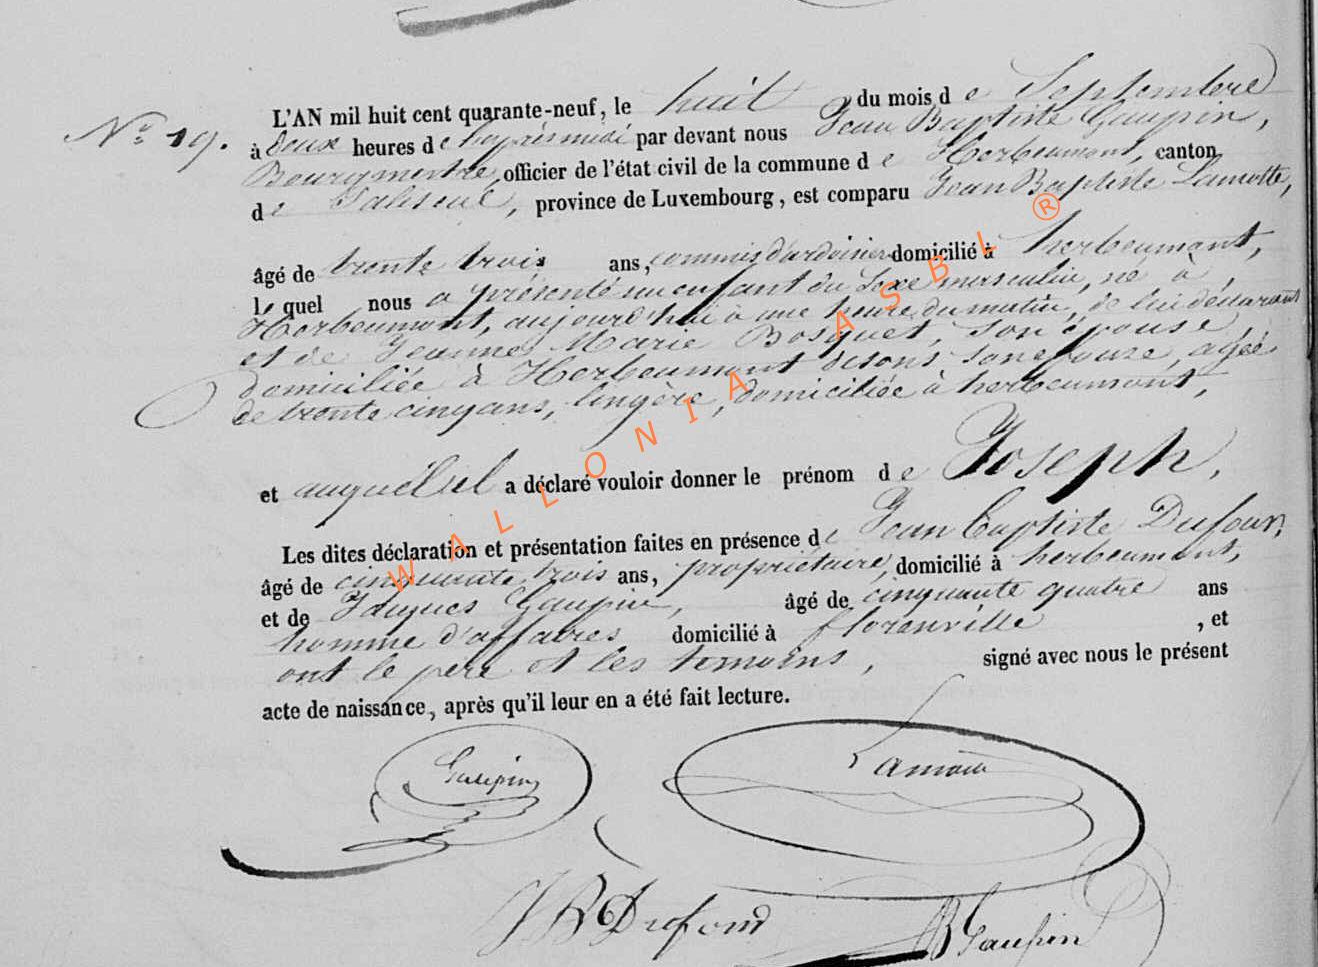 L'AN mil huit cent quarante-neuf, le huit du mois de Septembre
N° 19. à deux heures de l'après midi par devant nous Jean Baptiste Gaupin,
Bourgmestre, officier de l'état civil de la commune de Herbeumont, canton
de Paliseul, province de Luxembourg, est comparu Jean Baptiste Lamotte,
âgé de trente trois ans, commis d'ardoisier domicilié à herbeumont,
lequel nous a présenté un enfant du sexe masculin, né à
Herbeumont, aujourd'hui à une heure du matin, de lui déclarant
et de Jeanne Marie Bosquet, son épouse,
domiciliée à Herbeumont disons son epouse, agée
de trente cinq ans, lingère, domiciliée à herbeumont,
et auquel il a déclaré vouloir donner le prénom de Joseph,
Les dites déclaration et présentation faites en présence de Jean Baptiste Dufour,
âgé de cinquante trois ans, propriétaire, domicilié à herbeumont,
et de Jacques Gaupin, âgé de cinquante quatre ans
homme d'affaires domicilié à florenville, et
ont le père et les temoins, signé avec nous le présent
acte de naissance, après qu'il leur en a été fait lecture.
Gaupin Lamotte
JB Dufour JB Gaupin
WALLONIA ASBL ®